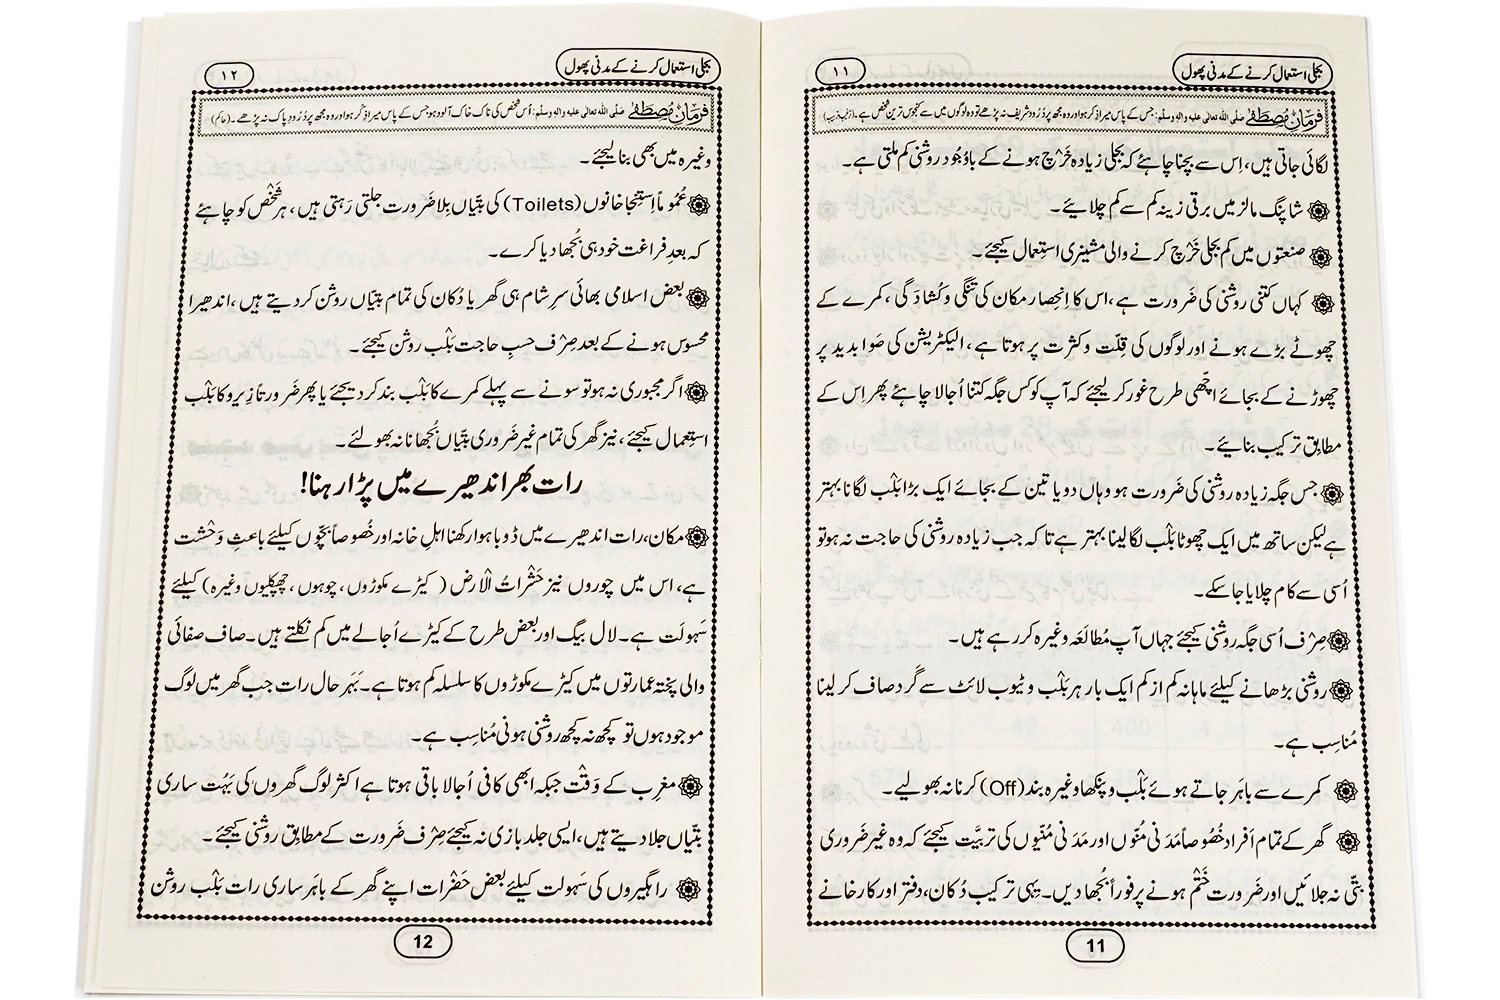 بجلی استعمال کرنے کے مدنی پھول
۱۱
فرمانِ مصطفٰے صلی اللہ تعالیٰ علیہ والہ وسلم: جس کے پاس میرا ذکر ہوا ور وہ مجھ پر دُرُود شریف نہ پڑھے تو وہ لوگوں میں سے کنجوس ترین شخص ہے۔
لگائی جاتی ہیں، اِس سے بچنا چاہئے کہ بجلی زیادہ خَرْچ ہونے کے باوُجُود روشنی کم ملتی ہے۔
شاپنگ مالز میں برقی زینہ کم سے کم چلائیے۔
صنعتوں میں کم بجلی خَرْچ کرنے والی مشینری استِعمال کیجئے۔
کہاں کتنی روشنی کی ضَرورت ہے، اس کا اِنحِصار مکان کی تنگی و کُشادَگی، کمرے کے
چھوٹے بڑے ہونے اور لوگوں کی قِلّت و کثرت پر ہوتا ہے، الیکٹریشن کی صَوابدید پر
چھوڑنے کے بجائے اچّھی طرح غور کر لیجئے کہ آپ کو کس جگہ کتنا اُجالا چاہئے پھر اِس کے
مطابِق ترکیب بنائیے۔
جس جگہ زیادہ روشنی کی ضَرورت ہو وہاں دو یا تین کے بجائے ایک بڑا بَلْب لگانا بہتر
ہے لیکن ساتھ میں ایک چھوٹا بَلْب لگا لینا بہتر ہے تا کہ جب زیادہ روشنی کی حاجت نہ ہو تو
اُسی سے کام چلایا جا سکے۔
صِرْف اُسی جگہ روشنی کیجئے جہاں آپ مُطالَعَہ وغیرہ کر رہے ہیں۔
روشنی بڑھانے کیلئے ماہانہ کم از کم ایک بار ہر بَلْب و ٹیوب لائٹ سے گَرد صاف کر لینا
مُناسِب ہے۔
کمرے سے باہَر جاتے ہوئے بَلْب و پنکھا وغیرہ بند (Off) کرنا نہ بھولیے۔
گھر کے تمام اَفراد خُصُوصاً مَدَنی مُنّوں اور مَدَنی مُنّیوں کی تربیَّت کیجئے کہ وہ غیر ضَروری
بتّی نہ جلائیں اور ضَرورت خَتْم ہونے پر فوراً بُجھا دیں۔ یِہی ترکیب دُکان، دفتر اور کارخانے
11
بجلی استعمال کرنے کے مدنی پھول
۱۲
فرمانِ مصطفٰے صلی اللہ تعالیٰ علیہ والہ وسلم: اُس شخص کی ناک خاک آلود ہو جس کے پاس میرا ذِکر ہو اور وہ مجھ پر دُرُودِ پاک نہ پڑھے۔ (حاکم)
وغیرہ میں بھی بنا لیجئے۔
عُمُوماً اِستِنجا خانوں (Toilets) کی بتّیاں بِلا ضَرورت جلتی رہتی ہیں، ہر شَخْص کو چاہئے
کہ بعدِ فراغت خود ہی بُجھا دیا کرے۔
بعض اسلامی بھائی سرِ شام ہی گھر یا دُکان کی تمام بتّیاں روشن کر دیتے ہیں، اندھیرا
محسوس ہونے کے بعد صِرْف حسبِ حاجت بَلْب روشن کیجئے۔
اگر مجبوری نہ ہو تو سونے سے پہلے کمرے کا بَلْب بند کر دیجئے یا پھر ضَرورتاً زِیرو کا بَلْب
استِعمال کیجئے، نیز گھر کی تمام غیر ضَروری بتّیاں بُجھانا نہ بھولئے۔
رات بھر اندھیرے میں پڑا رہنا!
مکان، رات اندھیرے میں ڈوبا ہوا رکھنا اہلِ خانہ اور خُصُوصاً بچّوں کیلئے باعثِ وَحْشت
ہے، اس میں چوروں نیز حَشْراتُ الْاَرض (کیڑے مکوڑوں، چوہوں، چھپکلیوں وغیرہ) کیلئے
سَہولَت ہے۔ لال بیگ اور بعض طرح کے کیڑے اُجالے میں کم نکلتے ہیں۔ صاف صفائی
والی پختہ عمارتوں میں کیڑے مکوڑوں کا سلسلہ کم ہوتا ہے۔ بَہَر حال رات جب گھر میں لوگ
موجود ہوں تو کچھ نہ کچھ روشنی ہونی مُناسِب ہے۔
مغرِب کے وَقْت جبکہ ابھی کافی اُجالا باقی ہوتا ہے اکثر لوگ گھروں کی بَہُت ساری
بتّیاں جلا دیتے ہیں، ایسی جلد بازی نہ کیجئے صِرْف ضَرورت کے مطابِق روشنی کیجئے۔
راہگیروں کی سَہولت کیلئے بعض حَضْرات اپنے گھر کے باہَر ساری رات بَلْب روشن
12